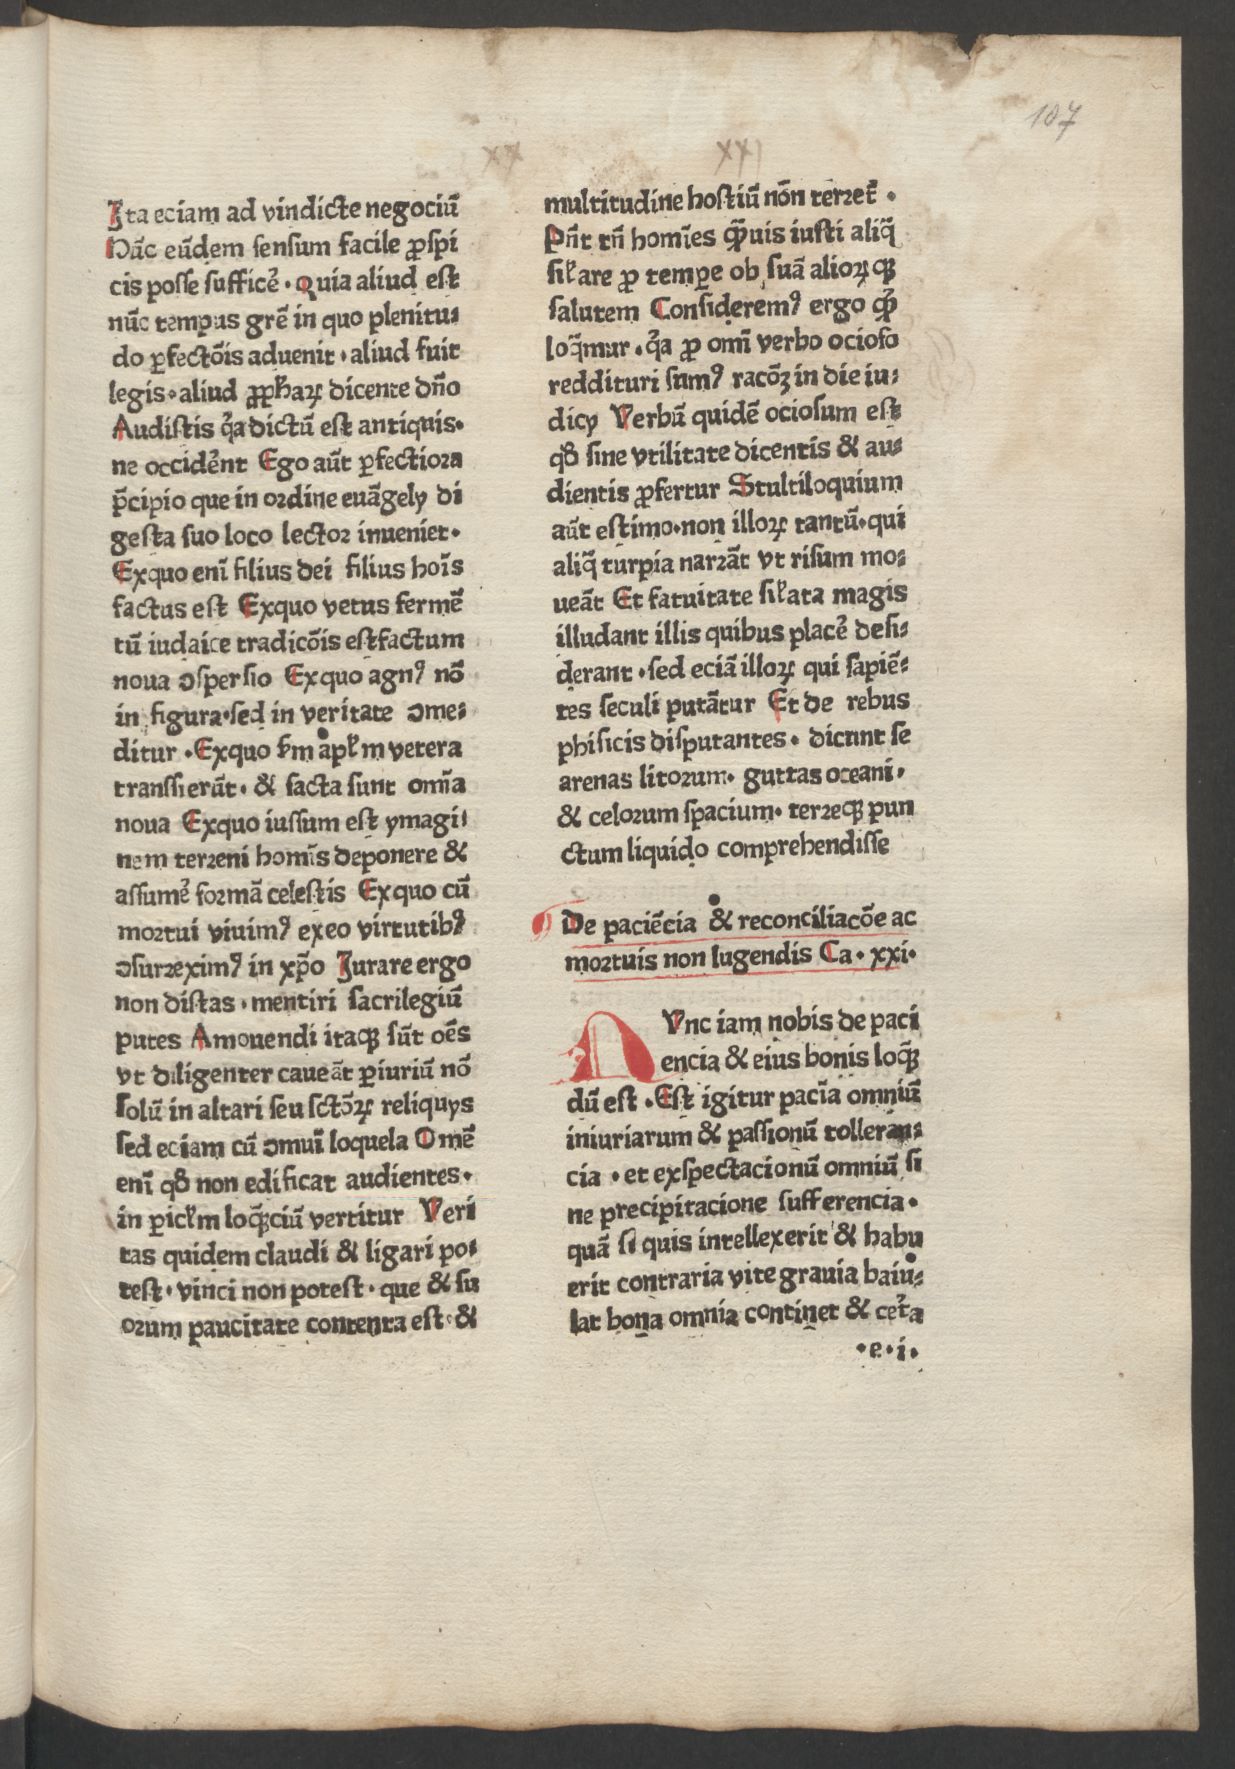 107
xx
xxi
Ita eciam ad vindicte negociū
Hāc eūdem sensum facile ꝓspi
cis posse sufficē̉ · Quia aliud est
nūc tempus grē in quo plenitu⸗
do ꝑfectōis aduenit · aliud fuit
legis · aliud ꝓpħaꝝ dicente dn̄o
Audistis q̄a dictū est antiquis·
ne occidēnt Ego aūt ꝑfectiora
p̄cipio que in ordine euāgelÿ di
gesta suo loco lector inueniet ·
Exquo enī filius dei filius hoīs
factus est Exquo vetus fermē
tū iudaice tradicōis estfactum
noua ꝯspersio Exquo agnꝰ nō
in figura·sed in veritate ꝯme⸗
ditur · Exquo ẜm apl̄m vetera
transsierūt · & facta sunt om̄ia
noua Exquo iussum est ymagi⸗
nem terreni homīs deponere &
assumē̉ formā celestis Exquo cū
mortui viuimꝰ exeo virtutibꝰ
ꝯsurreximꝰ in xp̄o Jurare ergo
non distas · mentiri sacrilegiū
putes Amouendi itaqꝫ sūt oēs
vt diligenter caueāt ꝑiuriū nō
solū in altari seu sctōꝝ reliquÿs
sed eciam cū ꝯmuī loquela Omē
enī qđ non edificat audientes ·
in ꝑicl̄m loq̄ꝫciū vertitur Veri
tas quidem claudi & ligari po⸗
test · vinci non potest · que & su
orum paucitate contenta est · &
multitudine hostiū nōn terret̄ ·
Pn̄t tn̄ homīes q̄ꝫuis iusti aliq̄
sil̄are ꝓ tempe ob suā alioꝝ qꝫ
salutem Consideremꝰ ergo q̄ꝫ
loq̄mur · q̄a ꝓ omī verbo ocioso
reddituri sumꝰ racōꝫ in die iu⸗
dicÿ Verbū quidē ociosum est
qđ sine vtilitate dicentis & au⸗
dientis ꝓfertur Stultiloquium
aūt estimo · non illoꝝ tantū · qui
aliq̄ turpia narrāt vt risum mo⸗
ueāt Et fatuitate sil̄ata magis
illudant illis quibus placē̉ desi⸗
derant · sed eciā illoꝝ qui sapiē⸗
tes seculi putātur Et de rebus
phisicis disputantes · dicunt se
arenas litorum · guttas oceani ·
& celorum spacium · terreqꝫ pun
ctum liquido comprehendisse
De paciēcia & reconciliacōe ac
mortuis non lugendis Ca · xxi ·
NVnc iam nobis de paci
encia & eius bonis loq̄ꝫ
dū est · Est igitur pacīa omniū
iniuriarum & passionū tolleran⸗
cia · et exspectacionū omniū si
ne precipitacione sufferencia ·
quā si quis intellexerit & habu
erit contraria vite grauia baiu⸗
lat bona omnia continet & cet̄a
· e · i ·